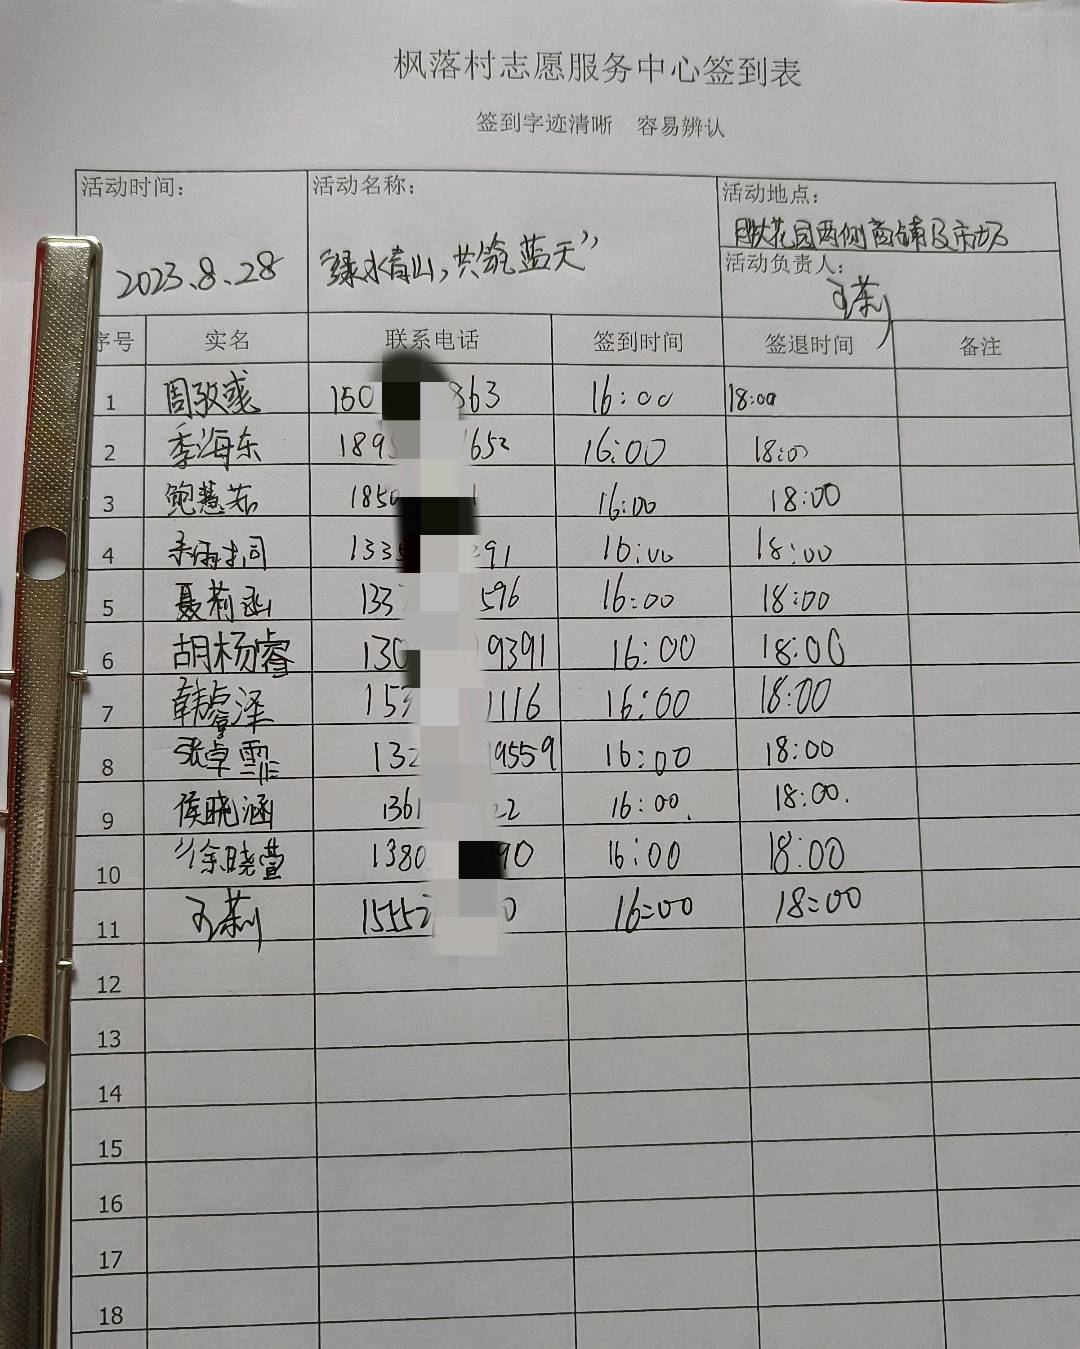 枫落村志愿服务中心签到表
签到字迹清晰 容易辨认
活动时间： 活动名称： 活动地点：
花园两侧商铺及市场
2023.8.28 “绿水青山，共筑蓝天” 活动负责人：
王莉
序号 实名 联系电话 签到时间 签退时间 备注
1 周 150 863 16:00 18:00
2 季海东 189 652 16:00 18:00
3 鲍慧 1850 16:00 18:00
4 1335 291 16:00 18:00
5 聂莉函 133 596 16:00 18:00
6 胡杨睿 130 9391 16:00 18:00
7 韩睿泽 153 1116 16:00 18:00
8 张卓霏 132 9559 16:00 18:00
9 侯晓涵 1361 22 16:00. 18:00.
10 徐晓萱 1380 90 16:00 18:00
11 王莉 15552 0 16:00 18:00
12
13
14
15
16
17
18